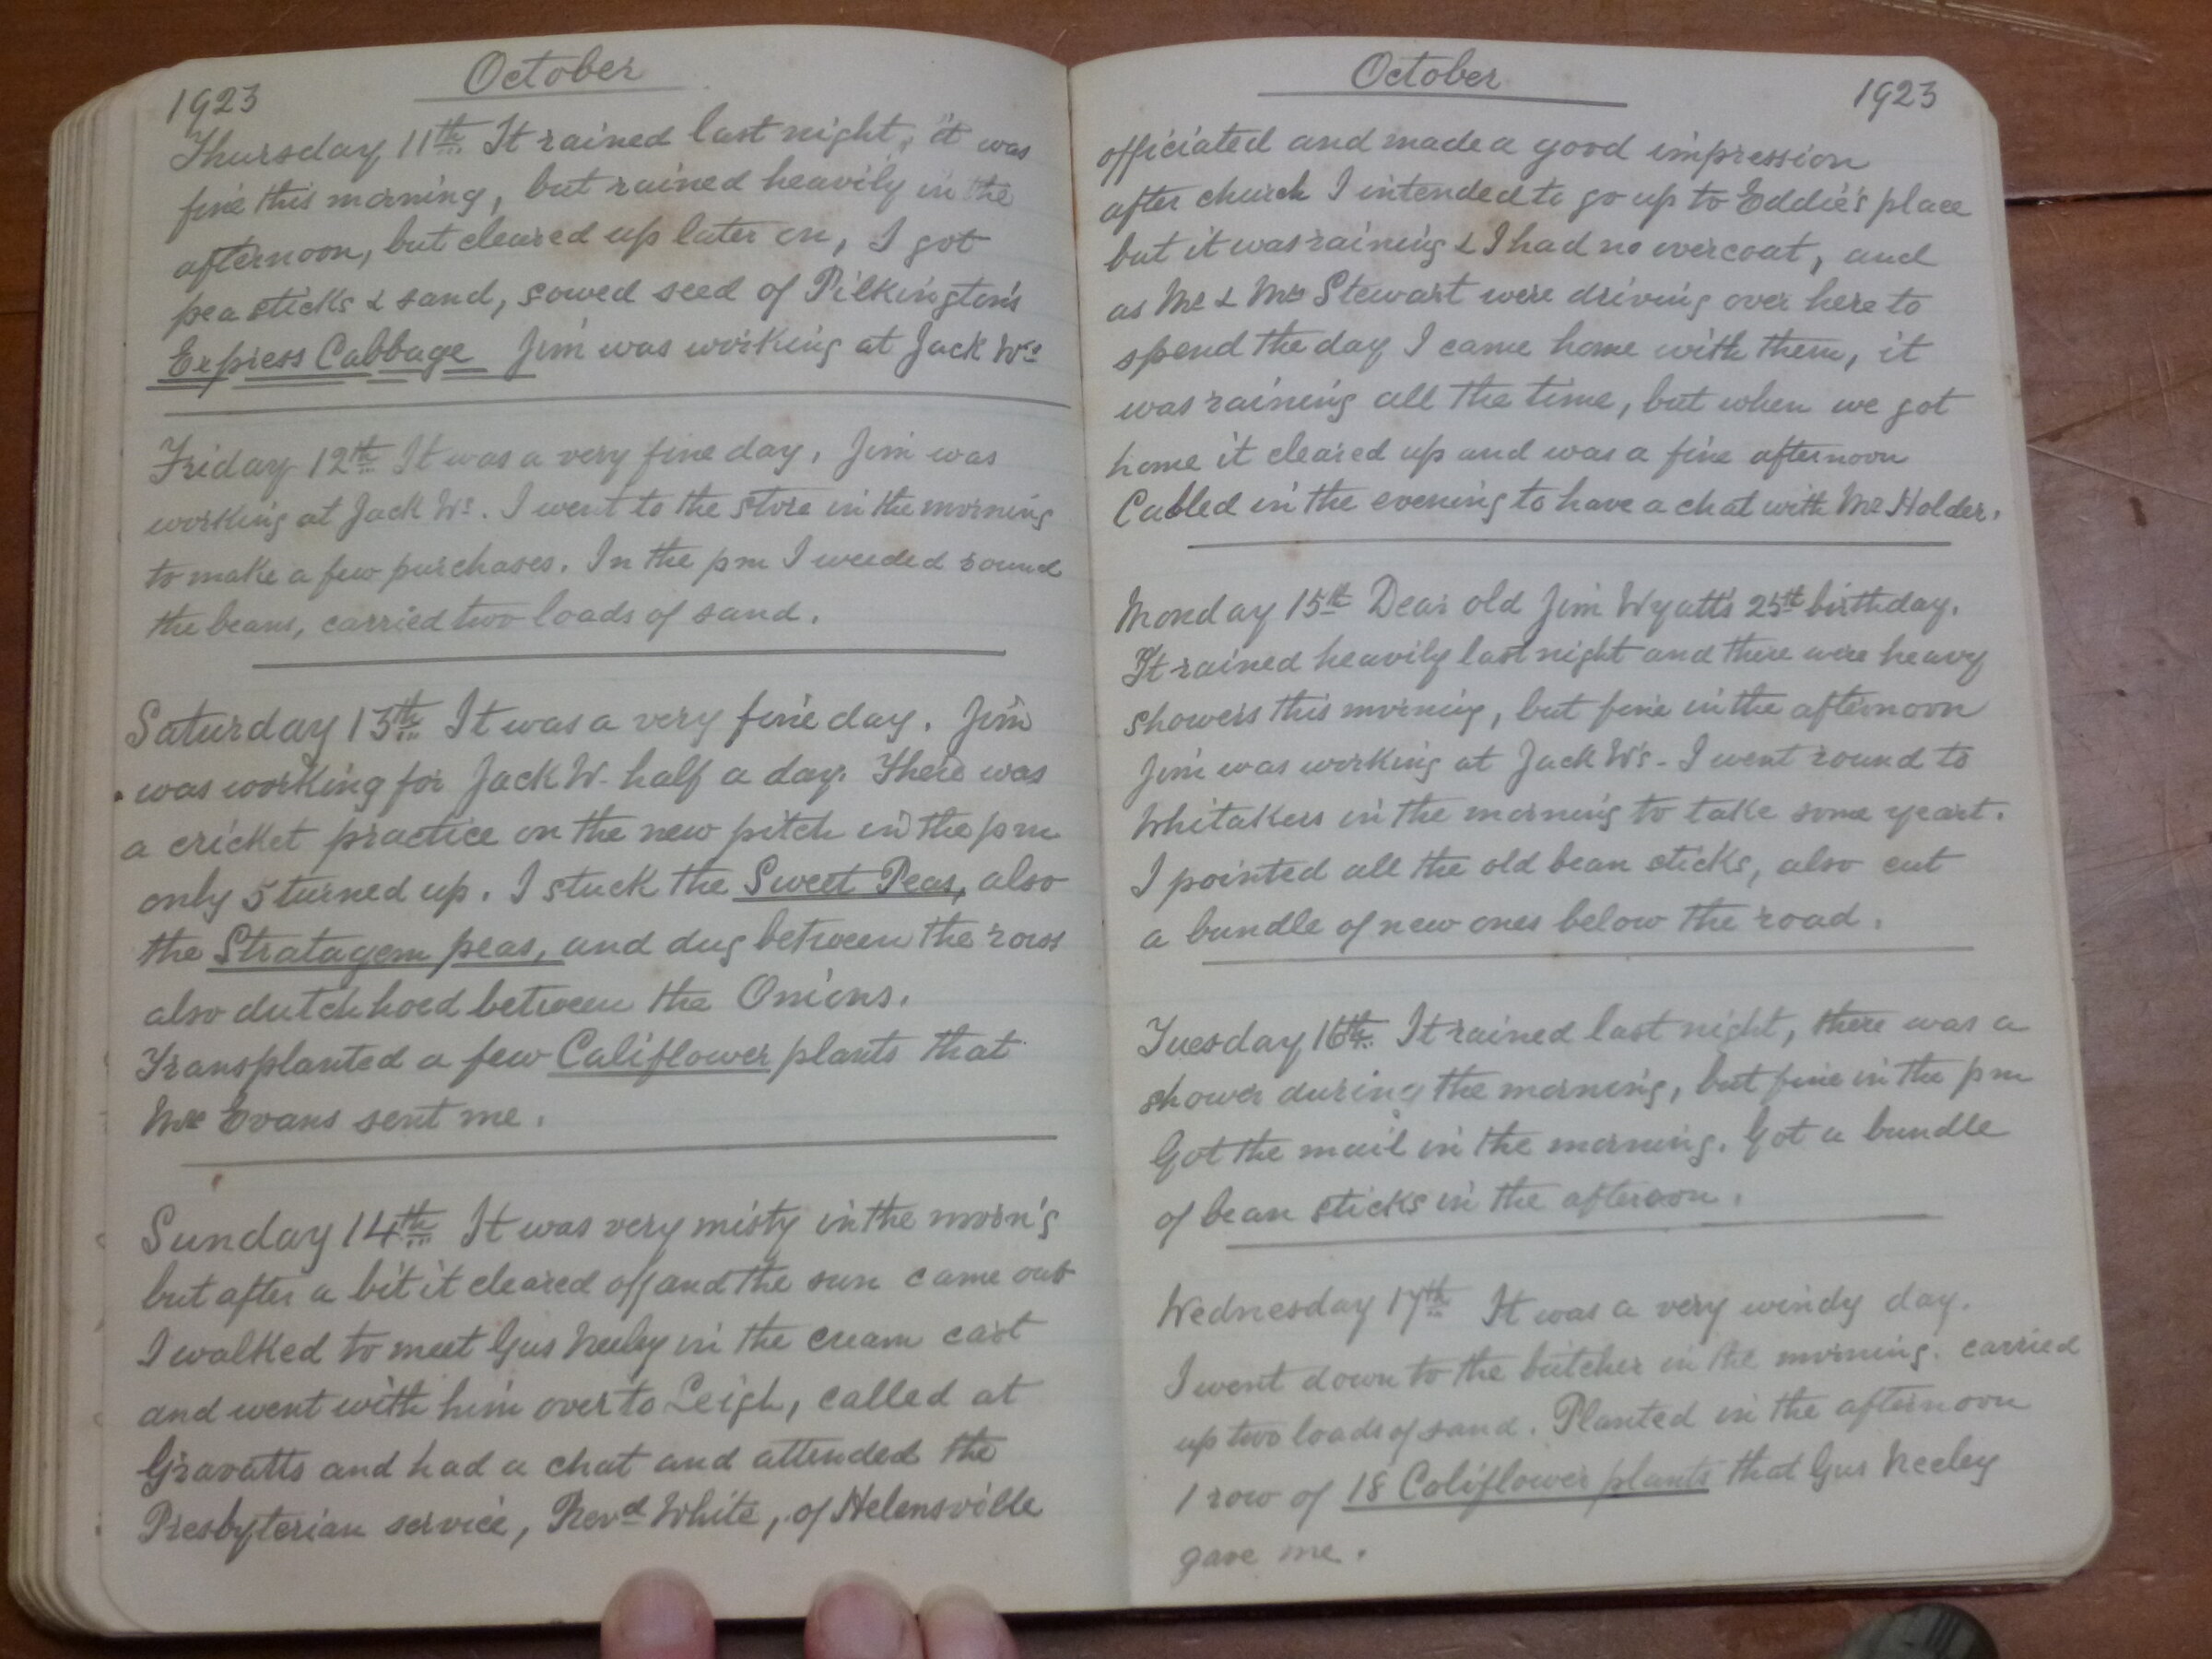 October
1923
Thursday 11th It rained last night, it was
fine this morning, but rained heavily in the
afternoon, but cleared up later on, I got
pea sticks & sand, sowed seed of Pilkington's
Express Cabbage Jim was working at Jack Ws
Friday 12th It was a very fine day. Jim was
working at Jack Ws. I went to the store in the morning
to make a few purchases. In the pm I weeded round
the beans, carried two loads of sand.
Saturday 13th It was a very fine day. Jim
was working for Jack W. half a day. There was
a cricket practice on the new pitch in the pm
only 5 turned up. I stuck the Sweet Peas, also
the Stratagem peas, and dug between the rows
also dutch hoed between the Onions.
Transplanted a few Califlower plants that
Mr Evans sent me.
Sunday 14th It was very misty in the morn'g
but after a bit it cleared off and the sun came out
I walked to meet Gus Neeley in the cream cart
and went with him over to Leigh, called at
Gravatts and had a chat and attended the
Presbyterian service, Revd White, of Helensville
October
1923
officiated and made a good impression
after church I intended to go up to Eddie's place
but it was raining & I had no overcoat, and
as Mr & Mrs Stewart were driving over here to
spend the day I came home with them, it
was raining all the time, but when we got
home it cleared up and was a fine afternoon
Called in the evening to have a chat with Mr Holder.
Monday 15th Dear old Jim Wyatt's 25th birthday.
It rained heavily last night and there were heavy
showers this morning, but fine in the afternoon
Jim was working at Jack W's - I went round to
Whitakers in the morning to take some yeast.
I pointed all the old bean sticks, also cut
a bundle of new ones below the road.
Tuesday 16th It rained last night, there was a
shower during the morning, but fine in the pm
Got the mail in the morning. Got a bundle
of bean sticks in the afteroon.
Wednesday 17th It was a very windy day.
I went down to the butcher in the morning. carried
up two loads of sand. Planted in the afternoon
1 row of 18 Coliflower plants that Gus Neeley
gave me.